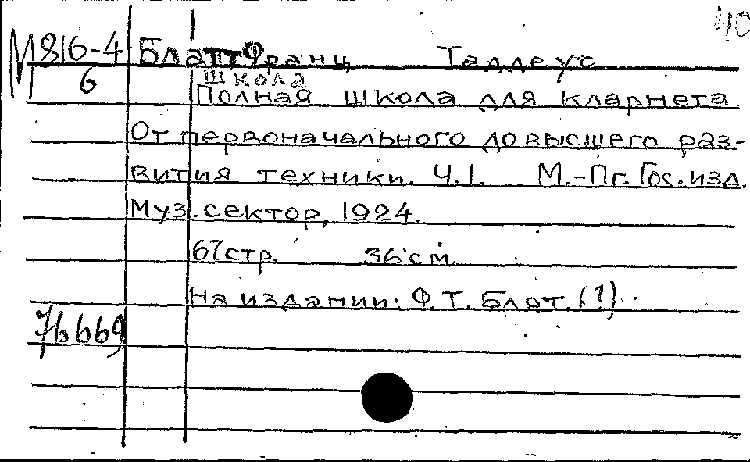 40
М 816-4 Блатт Франц Таддеус
6 Школа
Полная школа для кларнета
От первоначального до высшего раз-
вития техники. Ч.1. М.-Пг. Гос. изд.
Муз. сектор, 1924.
67 стр. 36 см
На издании: Ф.Т. Блят. (!)
76669